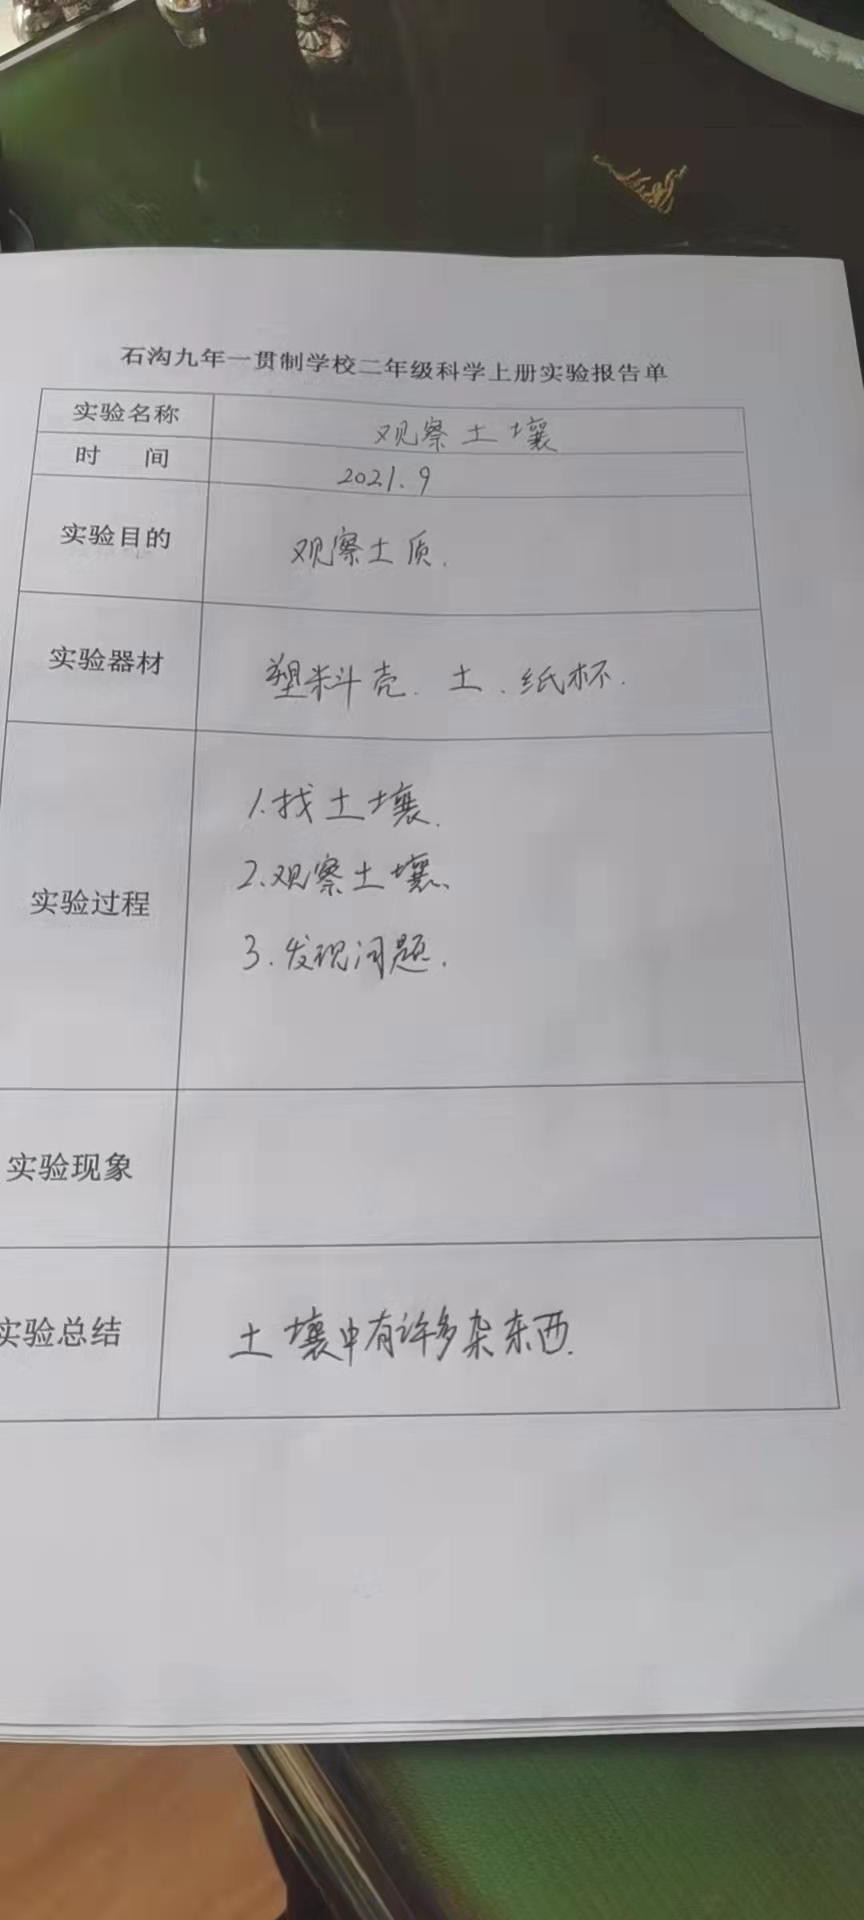 石沟九年一贯制学校二年级科学上册实验报告单
实验名称 观察土壤
时 间 2021.9
实验目的 观察土质.
实验器材 塑料壳. 土、纸杯.
实验过程
1.找土壤.
2.观察土壤、
3.发现问题.
实验现象
实验总结 土壤中有许多杂东西.